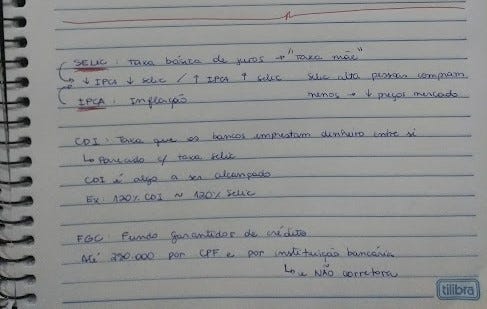 SELIC: Taxa básica de juros → "Taxa mãe"
↓ IPCA ↓ selic / ↑ IPCA ↑ selic   selic alta pessoas compram
IPCA: Inflação   menos → ↓ preços mercado
CDI: Taxa que os bancos emprestam dinheiro entre si
↳ Pareado c/ taxa selic
CDI é algo a ser alcançado
Ex: 120% CDI ≈ 120% selic
FGC: Fundo garantidor de crédito
Até 250.000 por CPF e por instituição bancária
↳ e NÃO corretora
tilibra